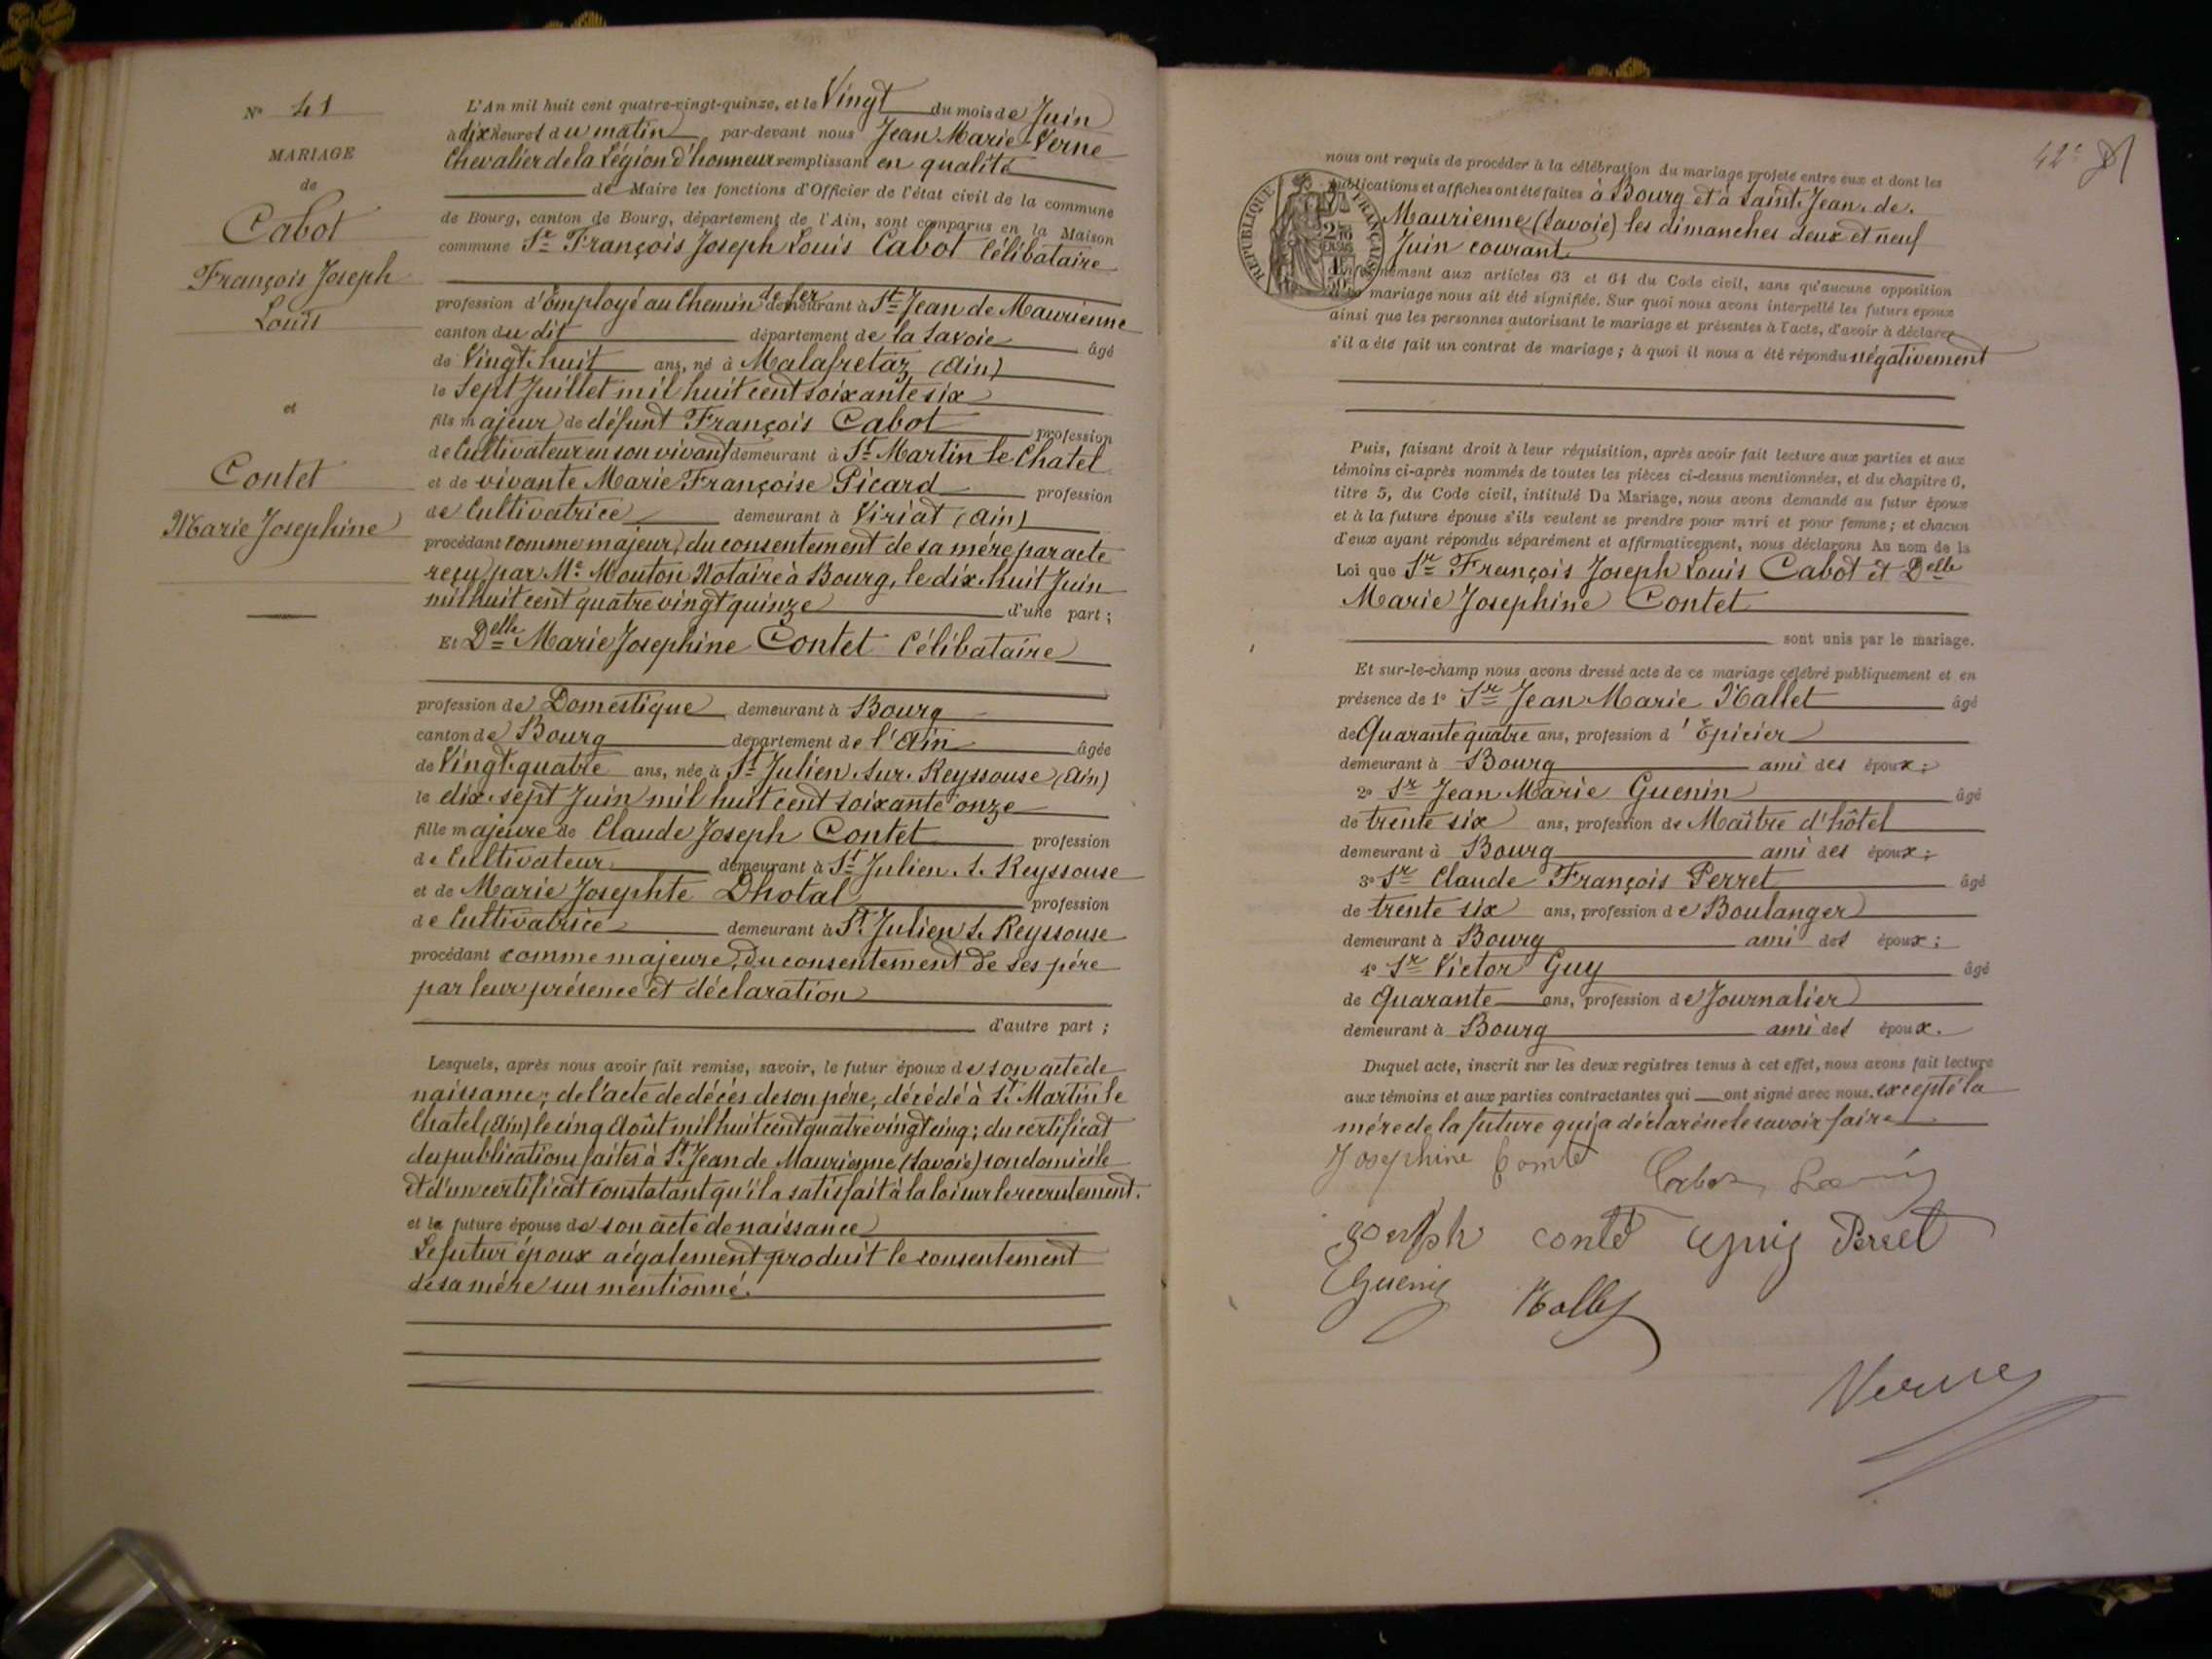 Nº 41
MARIAGE
de
Cabot
François Joseph
Louis
et
Contet
Marie Josephine
L'An mil huit cent quatre-vingt-quinze, et le Vingt du mois de Juin
à dix heures du matin par-devant nous Jean Marie Verne
Chevalier de la Légion d'honneur remplissant en qualité
de Maire les fonctions d'Officier de l'état civil de la commune
de Bourg, canton de Bourg, département de l'Ain, sont comparus en la Maison
commune Sr François Joseph Louis Cabot Célibataire
profession d'Employé au Chemin de fer demeurant à St Jean de Maurienne
canton du dit département de la Savoie âgé
de Vingt-huit ans, né à Malafretaz (Ain)
le Sept Juillet mil huit cent soixante six
fils majeur de défunt François Cabot profession
de Cultivateur en son vivant demeurant à St Martin le Chatel
et de vivante Marie Françoise Picard profession
de Cultivatrice demeurant à Viriat (Ain)
procédant comme majeur, du consentement de sa mére par acte
reçu par Me Mouton Notaire à Bourg, le dix-huit Juin
mil huit cent quatre vingt quinze d'une part ;
Et Delle Marie Josephine Contet Célibataire
profession de Domestique demeurant à Bourg
canton de Bourg département de l'Ain âgée
de Vingt-quatre ans, née à St Julien-sur-Reyssouse (Ain)
le dix-sept Juin mil huit cent soixante onze
fille majeure de Claude Joseph Contet profession
de Cultivateur demeurant à St Julien s. Reyssouse
et de Marie Josephte Dhotal profession
de Cultivatrice demeurant à St Julien s. Reyssouse
procédant comme majeure, du consentement de ses pére
par leur présence et déclaration
d'autre part ;
Lesquels, après nous avoir fait remise, savoir, le futur époux de son acte de
naissance; de l'acte de décés de son pére, décédé à St Martin le
Chatel (Ain) le cinq Août mil huit cent quatre vingt cinq; du certificat
des publications faites à St Jean de Maurienne (Savoie) son domicile
et d'un certificat constatant qu'il a satisfait à la loi sur le recrutement.
et la future épouse de son acte de naissance
Le futur époux a également produit le consentement
de sa mére sus mentionné.
42e
nous ont requis de procéder à la célébration du mariage projeté entre eux et dont les
publications et affiches ont été faites à Bourg et à Saint-Jean-de-
Maurienne (Savoie) les dimanches deux et neuf
Juin courant
RÉPUBLIQUE FRANÇAISE
conformément aux articles 63 et 64 du Code civil, sans qu'aucune opposition
mariage nous ait été signifiée. Sur quoi nous avons interpellé les futurs époux
ainsi que les personnes autorisant le mariage et présentes à l'acte, d'avoir à déclarer
s'il a été fait un contrat de mariage ; à quoi il nous a été répondu négativement
Puis, faisant droit à leur réquisition, après avoir fait lecture aux parties et aux
témoins ci-après nommés de toutes les pièces ci-dessus mentionnées, et du chapitre 6,
titre 5, du Code civil, intitulé Du Mariage, nous avons demandé au futur époux
et à la future épouse s'ils veulent se prendre pour mari et pour femme ; et chacun
d'eux ayant répondu séparément et affirmativement, nous déclarons Au nom de la
Loi que Sr François Joseph Louis Cabot et Delle
Marie Josephine Contet
sont unis par le mariage.
Et sur-le-champ nous avons dressé acte de ce mariage célébré publiquement et en
présence de 1º Sr Jean Marie Hallet âgé
de Quarante quatre ans, profession d'Épicier
demeurant à Bourg ami des époux ;
2º Sr Jean Marie Guenin âgé
de trente six ans, profession de Maître d'hôtel
demeurant à Bourg ami des époux ;
3º Sr Claude François Perret âgé
de trente six ans, profession de Boulanger
demeurant à Bourg ami des époux ;
4º Sr Victor Guy âgé
de Quarante ans, profession de Journalier
demeurant à Bourg ami des époux.
Duquel acte, inscrit sur les deux registres tenus à cet effet, nous avons fait lecture
aux témoins et aux parties contractantes qui ont signé avec nous. excepté la
mére de la future qui a déclaré ne le savoir faire
Josephine Comte Cabot Louis
Joseph conte Perret
Guenin Hallet
Verne